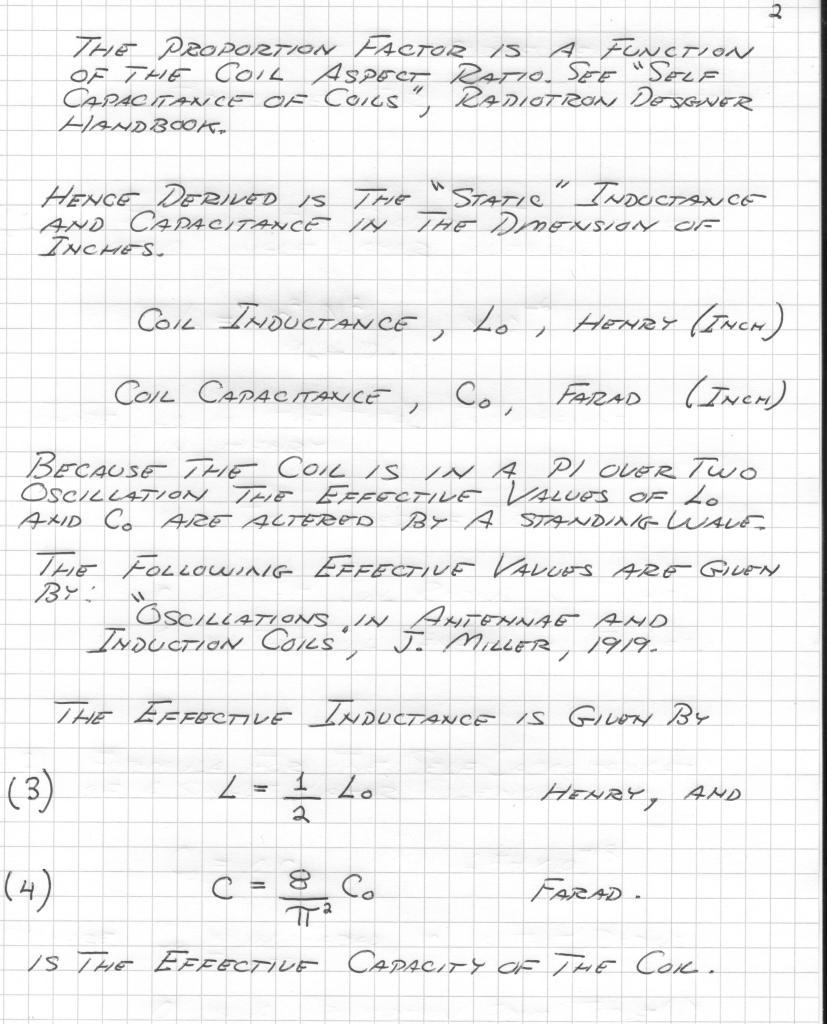 2
THE PROPORTION FACTOR IS A FUNCTION
OF THE COIL ASPECT RATIO. SEE "SELF
CAPACITANCE OF COILS", RADIOTRON DESIGNER
HANDBOOK.
HENCE DERIVED IS THE "STATIC" INDUCTANCE
AND CAPACITANCE IN THE DIMENSION OF
INCHES.
COIL INDUCTANCE , L₀ , HENRY (INCH)
COIL CAPACITANCE , C₀, FARAD (INCH)
BECAUSE THE COIL IS IN A PI OVER TWO
OSCILLATION THE EFFECTIVE VALUES OF L₀
AND C₀ ARE ALTERED BY A STANDING WAVE.
THE FOLLOWING EFFECTIVE VALUES ARE GIVEN
BY:
"OSCILLATIONS IN ANTENNAE AND
INDUCTION COILS", J. MILLER, 1919.
THE EFFECTIVE INDUCTANCE IS GIVEN BY
(3) L = 1/2 L₀ HENRY, AND
(4) C = 8/π² C₀ FARAD.
IS THE EFFECTIVE CAPACITY OF THE COIL.